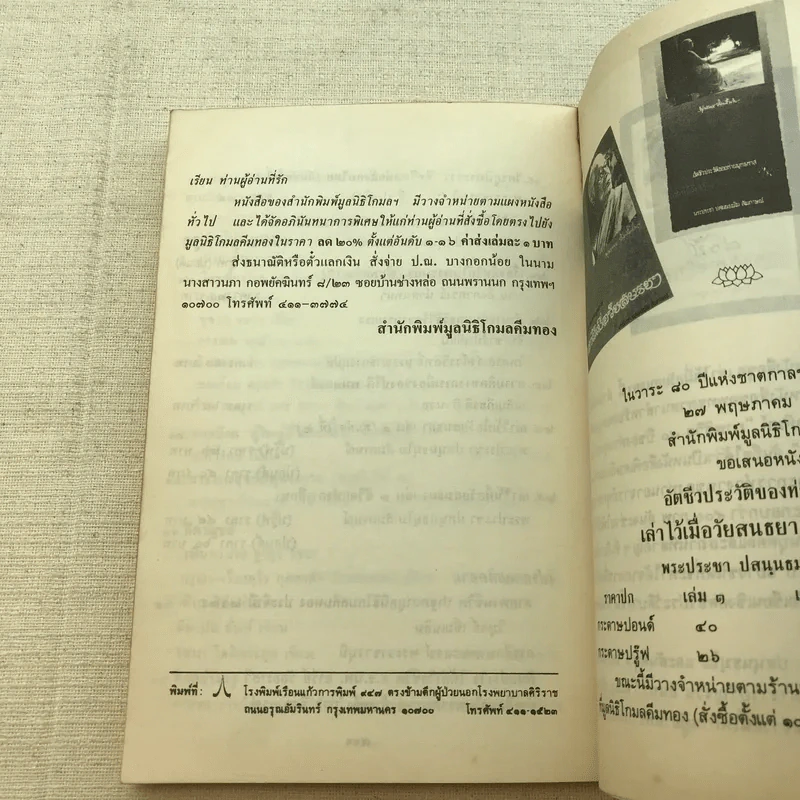 เรียน ท่านผู้อ่านที่รัก
หนังสือของสำนักพิมพ์มูลนิธิโกมลฯ มีวางจำหน่ายตามแผงหนังสือ
ทั่วไป และได้จัดอภินันทนาการพิเศษให้แก่ท่านผู้อ่านที่สั่งซื้อโดยตรงไปยัง
มูลนิธิโกมลคีมทองในราคา ลด ๒๐% ตั้งแต่อันดับ ๑-๑๖ ค่าส่งเล่มละ ๑ บาท
ส่งธนาณัติหรือตั๋วแลกเงิน สั่งจ่าย ป.ณ. บางกอกน้อย ในนาม
นางสาวนภา กอพยัคฆินทร์ ๘/๒๓ ซอยบ้านช่างหล่อ ถนนพรานนก กรุงเทพฯ
๑๐๗๐๐ โทรศัพท์ ๔๑๑-๓๗๗๔
สำนักพิมพ์มูลนิธิโกมลคีมทอง
พิมพ์ที่ : โรงพิมพ์เรือนแก้วการพิมพ์ ๙๔๗ ตรงข้ามตึกผู้ป่วยนอกโรงพยาบาลศิริราช
ถนนอรุณอัมรินทร์ กรุงเทพมหานคร ๑๐๗๐๐ โทรศัพท์ ๔๑๑-๑๕๒๓
ในวาระ ๘๐ ปีแห่งชาตกาล
๒๗ พฤษภาคม
สำนักพิมพ์มูลนิธิโกม
ขอเสนอหนัง
อัตชีวประวัติของท่
เล่าไว้เมื่อวัยสนธยา
พระประชา ปสนฺนธม
ราคาปก เล่ม ๑ เ
กระดาษปอนด์ ๔๐
กระดาษปรู๊ฟ ๒๖
ขณะนี้มีวางจำหน่ายตามร้าน
ที่มูลนิธิโกมลคีมทอง (สั่งซื้อตั้งแต่ ๑๐